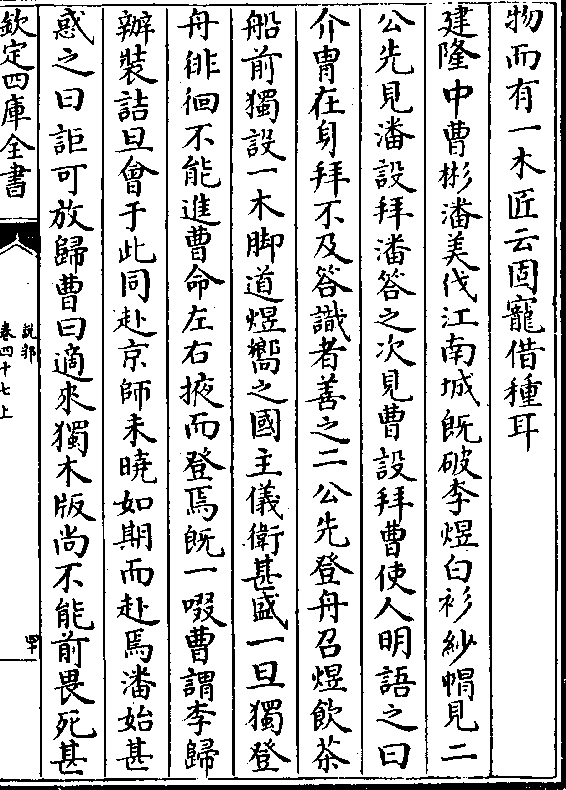 物而有一木匠云固寵借種耳
建隆中曹彬潘美伐江南城既破李煜白衫紗帽見二
公先見潘設拜潘答之次見曹設拜曹使人明語之曰
介胄在身拜不及答識者善之二公先登舟召煜飲茶
船前獨設一木脚道煜嚮之國主儀衛甚盛一旦獨登
舟徘徊不能進曹命左右掖而登焉既一啜曹謂李歸
辦裝詰旦會于此同赴京師未曉如期而赴焉潘始甚
惑之曰詎可放歸曹曰適來獨木版尚不能前畏死甚
欽定四庫全書
說郛
卷四十七上